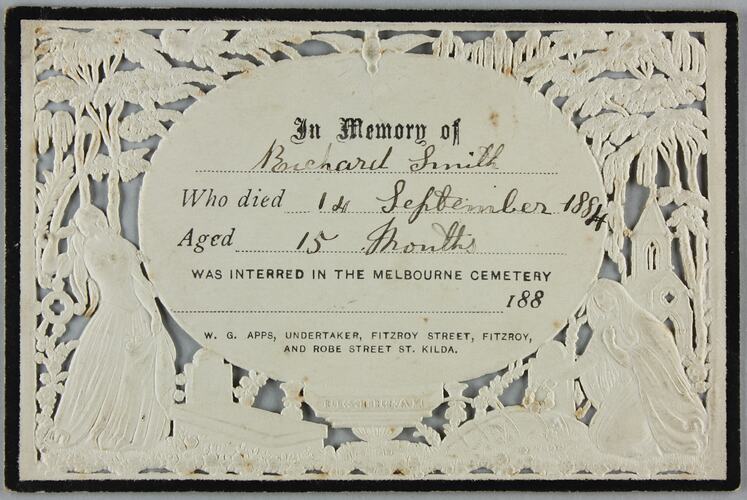 In Memory of
Richard Smith
Who died 14 September 1884
Aged 15 Months
WAS INTERRED IN THE MELBOURNE CEMETERY
188
W. G. APPS, UNDERTAKER, FITZROY STREET, FITZROY,
AND ROBE STREET ST. KILDA.